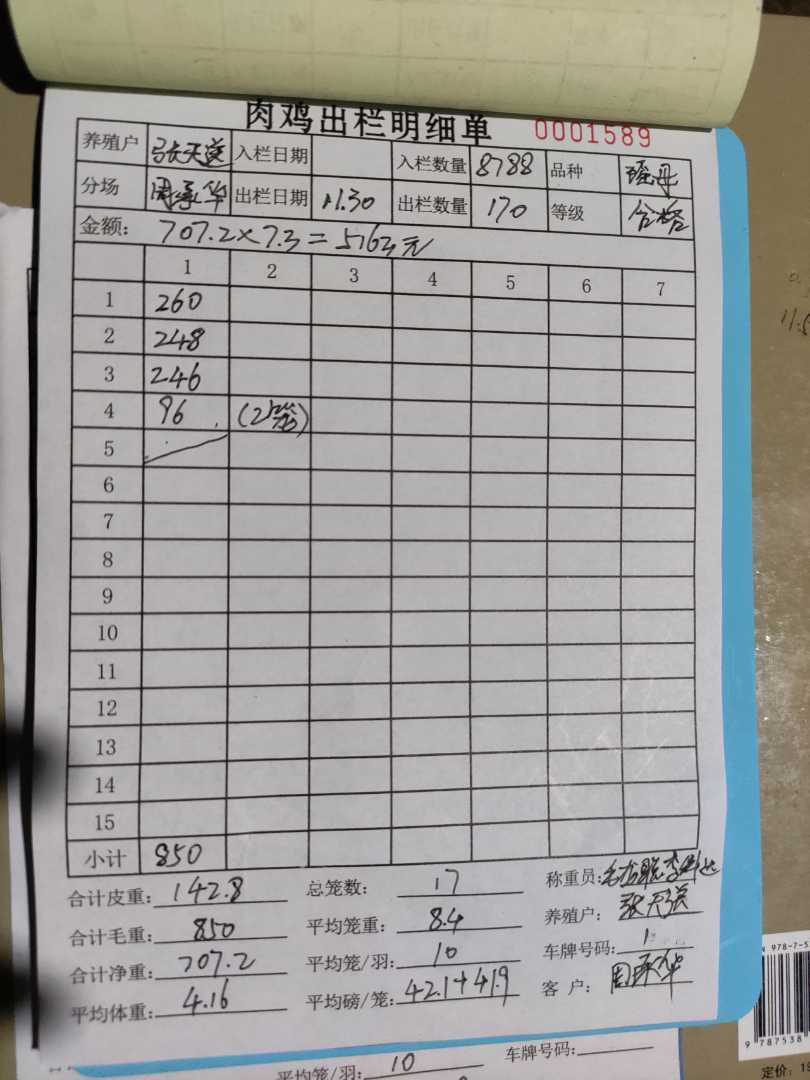 肉鸡出栏明细单 0001589
养殖户 张天强 入栏日期 入栏数量 8788 品种
分场 周承华 出栏日期 11.30 出栏数量 170 等级 合格
金额: 707.2×7.3=5163元
1 2 3 4 5 6 7
1 260
2 248
3 246
4 96 (2笼)
5
6
7
8
9
10
11
12
13
14
15
小计 850
合计皮重: 142.8 总笼数: 17 称重员:
合计毛重: 850 平均笼重: 8.4 养殖户: 张天强
合计净重: 707.2 平均笼/羽: 10 车牌号码:
平均体重: 4.16 平均磅/笼: 42.1+41.9 客户: 周承华
平均笼/羽: 10 车牌号码:
N 978-7-5
9 787538
定价: